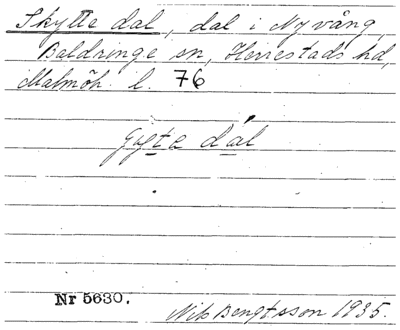 Skytte dal, dal i Nyvång,
Baldringe sn, Herrestads hd,
Malmöh. l. 76
dal
Nr 5630.
Nils Bengtsson 1935.